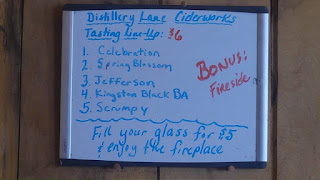 Distillery Lane Ciderworks
Tasting Line-Up: $6
1. Celebration
2. Spring Blossom
3. Jefferson
4. Kingston Black BA
5. Scrumpy
BONUS:
Fireside
Fill your glass for $5
& enjoy the fireplace